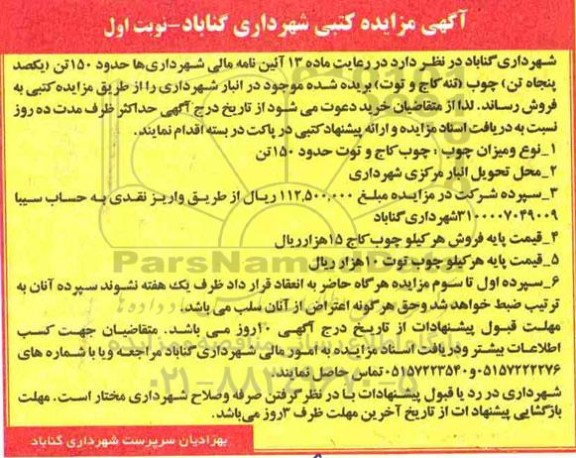 آگهی مزایده کتبی شهرداری گناباد-نوبت اول
شهرداری گناباد در نظر دارد در رعایت ماده ۱۳ آئین نامه مالی شهرداری‌ها حدود ۱۵۰تن (یکصد
پنجاه تن) چوب (تنه کاج و توت) بریده شده موجود در انبار شهرداری را از طریق مزایده کتبی به
فروش رساند. لذا از متقاضیان خرید دعوت می شود از تاریخ درج آگهی حداکثر ظرف مدت ده روز
نسبت به دریافت اسناد مزایده و ارائه پیشنهاد کتبی در پاکت در بسته اقدام نمایند.
۱_نوع ومیزان چوب : چوب کاج و توت حدود ۱۵۰تن
۲_محل تحویل انبار مرکزی شهرداری
۳_سپرده شرکت در مزایده مبلغ ۱۱۲,۵۰۰,۰۰۰ ریال از طریق واریز نقدی به حساب سیبا
۳۱۰۰۰۰۷۰۴۹۰۰۹شهرداری گناباد
۴_قیمت پایه فروش هر کیلو چوب کاج ۱۵هزارریال
۵_قیمت پایه هر کیلو چوب توت ۱۰هزار ریال
۶_سپرده اول تا سوم مزایده هر گاه حاضر به انعقاد قرار داد ظرف یک هفته نشوند سپرده آنان به
ترتیب ضبط خواهد شد وحق هر گونه اعتراض از آنان سلب می باشد.
مهلت قبول پیشنهادات از تاریخ درج آگهی ۱۰روز می باشد. متقاضیان جهت کسب
اطلاعات بیشتر ودریافت اسناد مزایده به امور مالی شهرداری گناباد مراجعه ویا با شماره های
۰۵۱۵۷۲۲۲۲۷۶و۰۵۱۵۷۲۲۳۵۴۰تماس حاصل نمایند.
شهرداری در رد یا قبول پیشنهادات با در نظر گرفتن صرفه وصلاح شهرداری مختار است. مهلت
بازگشایی پیشنهاد ات از تاریخ آخرین مهلت ظرف ۳روز می‌باشد.
بهزادیان سرپرست شهرداری گناباد
ParsNamadData
۰۲۱-۸۸۳۴۹۶۷۰-۵